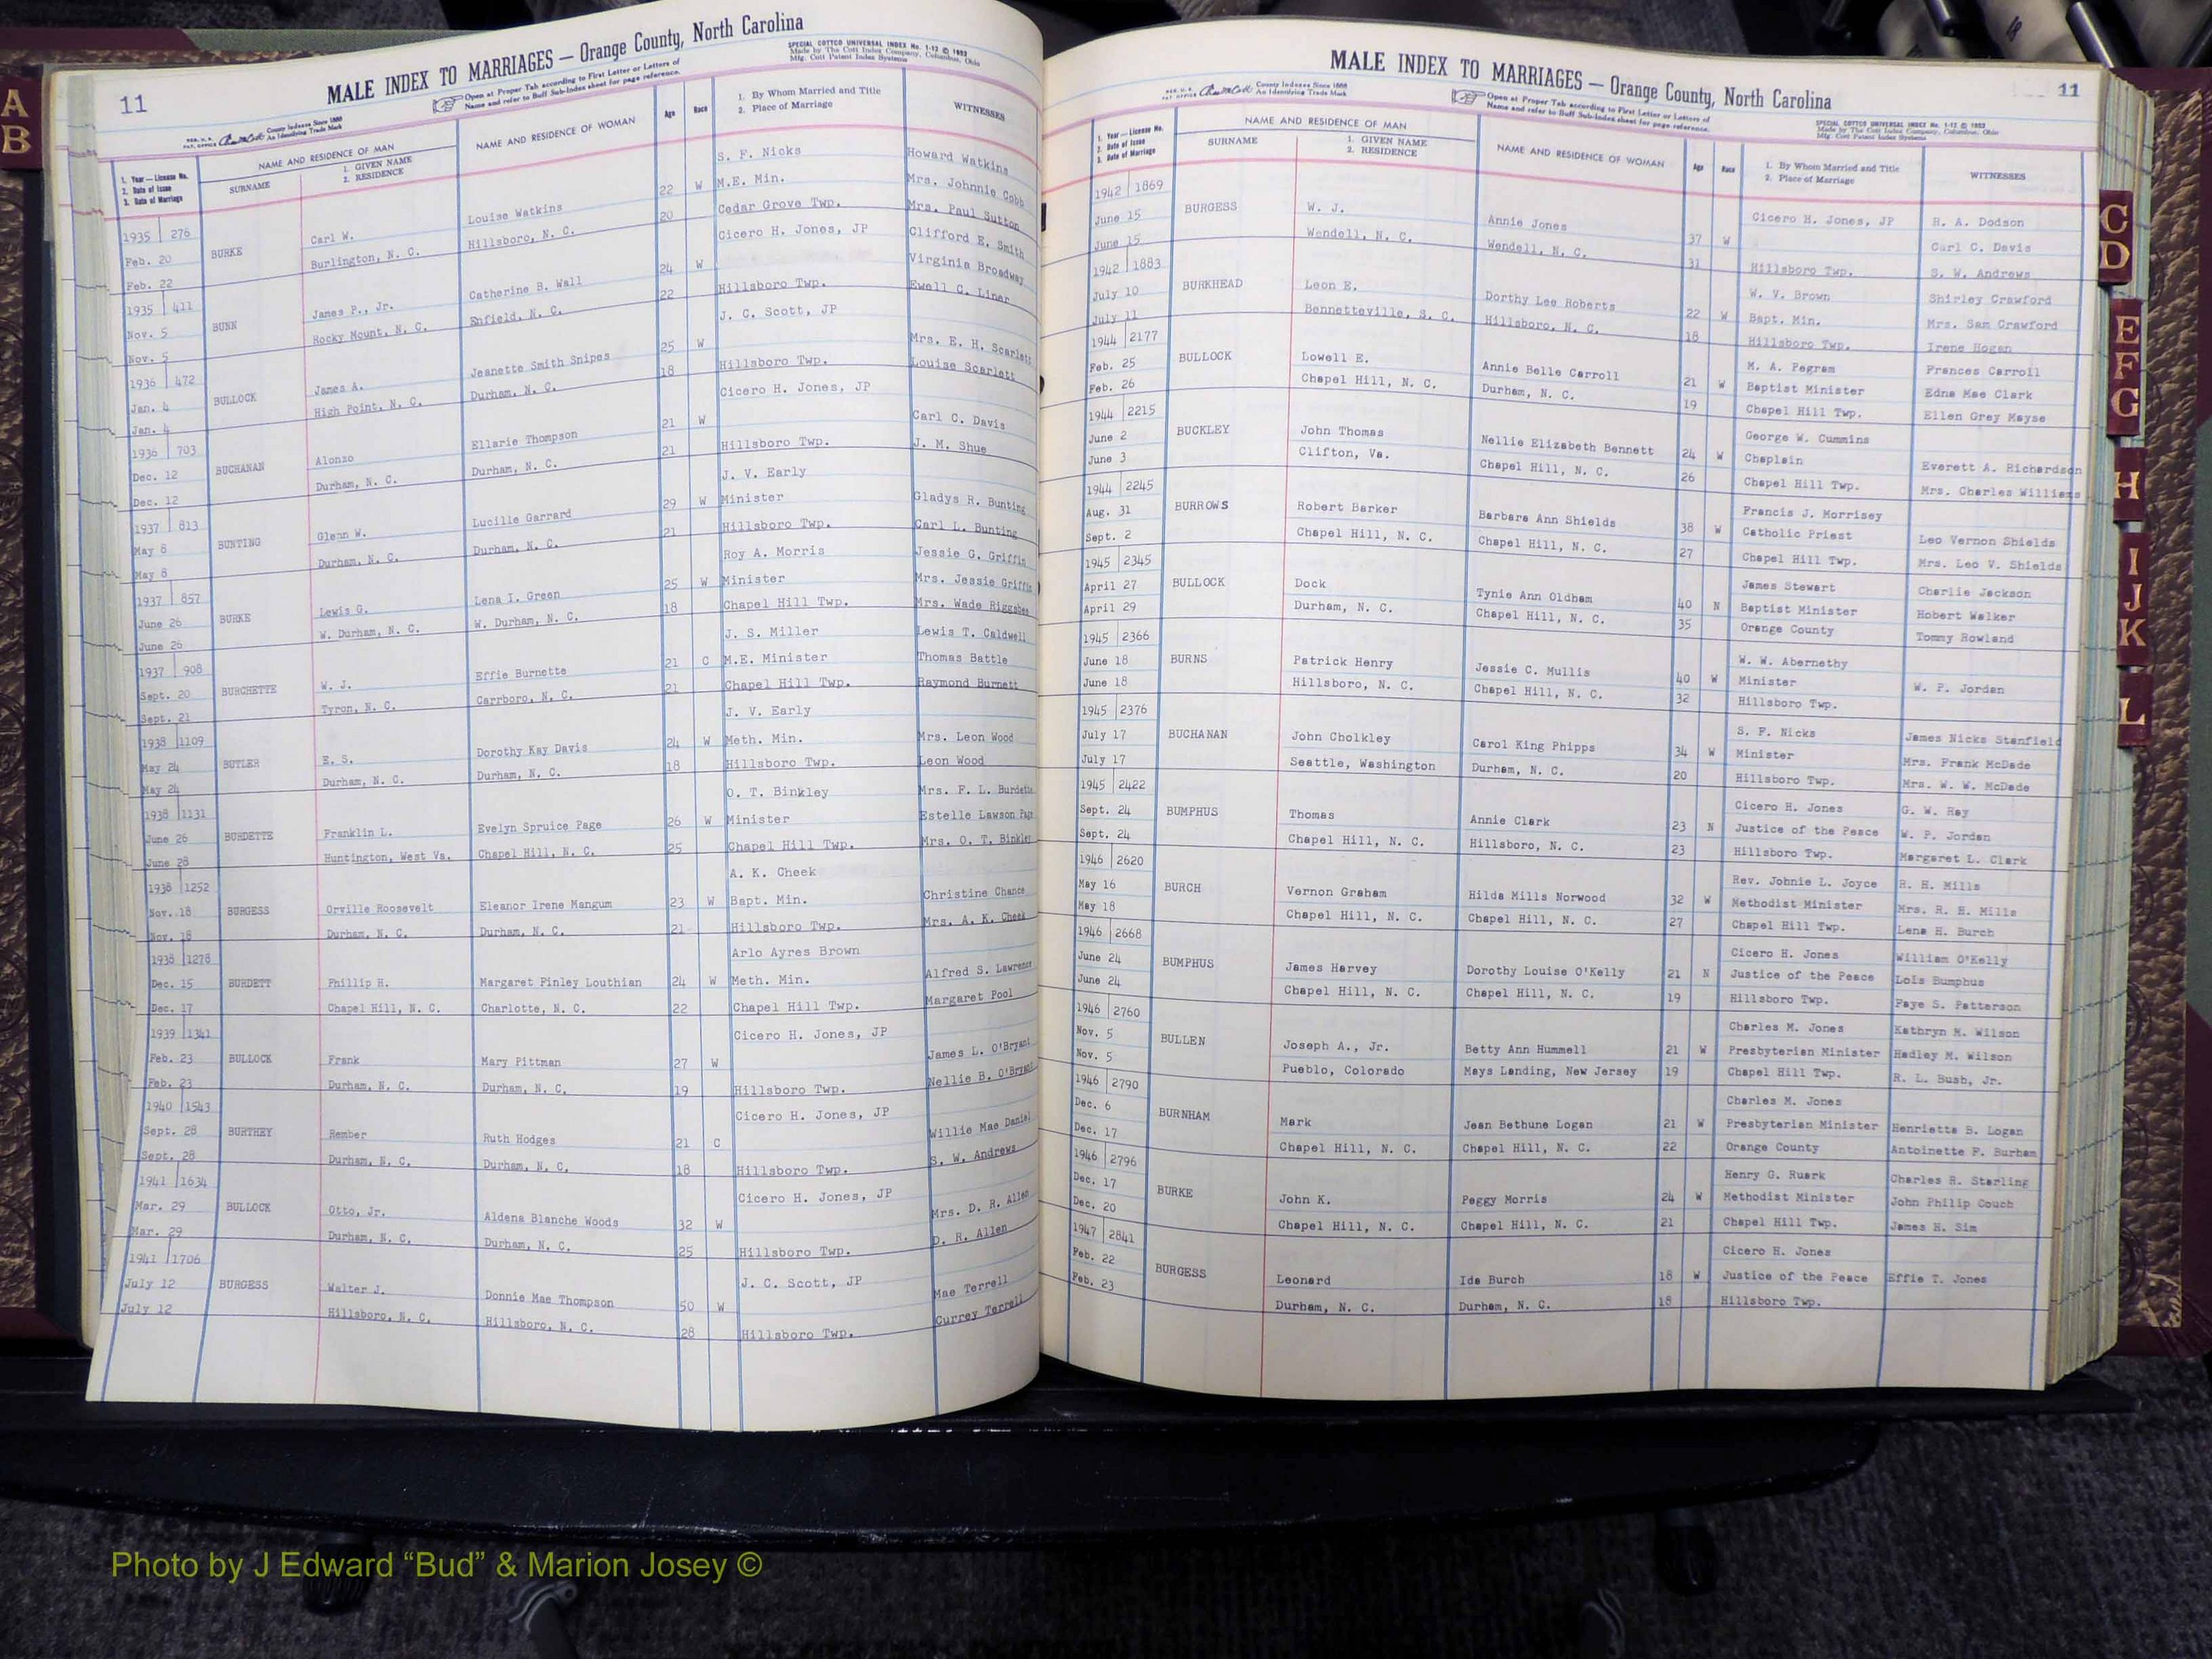 11
MALE INDEX TO MARRIAGES — Orange County, North Carolina
Open at Proper Tab according to First Letter or Letters of
Name and refer to Buff Sub-Index sheet for page reference.
SPECIAL COTTCO UNIVERSAL INDEX No. 1-12 © 1952
Made by The Cott Index Company, Columbus, Ohio
Mfg. Cott Patent Index Systems
County Indexes Since 1888
An Identifying Trade Mark
1. Year — License No.
2. Date of Issue
3. Date of Marriage
NAME AND RESIDENCE OF MAN
SURNAME
1. GIVEN NAME
2. RESIDENCE
NAME AND RESIDENCE OF WOMAN
Age
Race
1. By Whom Married and Title
2. Place of Marriage
WITNESSES
1935 276 S. F. Nicks Howard Watkins
Feb. 20 BURKE Carl W. Louise Watkins 22 W M.E. Min. Mrs. Johnnie Cobb
Feb. 22 Burlington, N. C. Hillsboro, N. C. 20 Cedar Grove Twp. Mrs. Paul Sutton
1935 411 Cicero H. Jones, JP Clifford E. Smith
Nov. 5 BUNN James P., Jr. Catherine B. Wall 24 W Virginia Broadway
Nov. 5 Rocky Mount, N. C. Enfield, N. C. 22 Hillsboro Twp. Ewell C. Liner
1936 472 J. C. Scott, JP
Jan. 4 BULLOCK James A. Jeanette Smith Snipes 25 W Mrs. E. H. Scarlett
Jan. 4 High Point, N. C. Durham, N. C. 18 Hillsboro Twp. Louise Scarlett
1936 703 Cicero H. Jones, JP
Dec. 12 BUCHANAN Alonzo Ellarie Thompson 21 W Carl C. Davis
Dec. 12 Durham, N. C. Durham, N. C. 21 Hillsboro Twp. J. M. Shue
1937 813 J. V. Early
May 8 BUNTING Glenn W. Lucille Garrard 29 W Minister Gladys R. Bunting
May 8 Durham, N. C. Durham, N. C. 21 Hillsboro Twp. Carl L. Bunting
1937 857 Roy A. Morris Jessie G. Griffin
June 26 BURKE Lewis G. Lena I. Green 25 W Minister Mrs. Jessie Griffin
June 26 W. Durham, N. C. W. Durham, N. C. 18 Chapel Hill Twp. Mrs. Wade Riggsbee
1937 908 J. S. Miller Lewis T. Caldwell
Sept. 20 BURCHETTE W. J. Effie Burnette 21 C M.E. Minister Thomas Battle
Sept. 21 Tyron, N. C. Carrboro, N. C. 21 Chapel Hill Twp. Raymond Burnett
1938 1109 J. V. Early
May 24 BUTLER E. S. Dorothy Kay Davis 24 W Meth. Min. Mrs. Leon Wood
May 24 Durham, N. C. Durham, N. C. 18 Hillsboro Twp. Leon Wood
1938 1131 O. T. Binkley Mrs. F. L. Burdette
June 26 BURDETTE Franklin L. Evelyn Spruice Page 26 W Minister Estelle Lawson Page
June 28 Huntington, West Va. Chapel Hill, N. C. 25 Chapel Hill Twp. Mrs. O. T. Binkley
1938 1252 A. K. Cheek
Nov. 18 BURGESS Orville Roosevelt Eleanor Irene Mangum 23 W Bapt. Min. Christine Chance
Nov. 18 Durham, N. C. Durham, N. C. 21 Hillsboro Twp. Mrs. A. K. Cheek
1938 1278 Arlo Ayres Brown
Dec. 15 BURDETT Phillip H. Margaret Finley Louthian 24 W Meth. Min. Alfred S. Lawrence
Dec. 17 Chapel Hill, N. C. Charlotte, N. C. 22 Chapel Hill Twp. Margaret Pool
1939 1341 Cicero H. Jones, JP
Feb. 23 BULLOCK Frank Mary Pittman 27 W James L. O'Bryant
Feb. 23 Durham, N. C. Durham, N. C. 19 Hillsboro Twp. Nellie B. O'Bryant
1940 1543 Cicero H. Jones, JP
Sept. 28 BURTHEY Rember Ruth Hodges 21 C Willie Mae Daniel
Sept. 28 Durham, N. C. Durham, N. C. 18 Hillsboro Twp. S. W. Andrews
1941 1634 Cicero H. Jones, JP
Mar. 29 BULLOCK Otto, Jr. Aldena Blanche Woods 32 W Mrs. D. R. Allen
Mar. 29 Durham, N. C. Durham, N. C. 25 Hillsboro Twp. D. R. Allen
1941 1706 J. C. Scott, JP
July 12 BURGESS Walter J. Donnie Mae Thompson 50 W Mae Terrell
July 12 Hillsboro, N. C. Hillsboro, N. C. 28 Hillsboro Twp. Currey Terrell
MALE INDEX TO MARRIAGES — Orange County, North Carolina
11
County Indexes Since 1888
An Identifying Trade Mark
Open at Proper Tab according to First Letter or Letters of
Name and refer to Buff Sub-Index sheet for page reference.
SPECIAL COTTCO UNIVERSAL INDEX No. 1-12 © 1952
Made by The Cott Index Company, Columbus, Ohio
Mfg. Cott Patent Index Systems
1. Year — License No.
2. Date of Issue
3. Date of Marriage
NAME AND RESIDENCE OF MAN
SURNAME
1. GIVEN NAME
2. RESIDENCE
NAME AND RESIDENCE OF WOMAN
Age
Race
1. By Whom Married and Title
2. Place of Marriage
WITNESSES
1942 1869 Cicero H. Jones, JP R. A. Dodson
June 15 BURGESS W. J. Annie Jones 37 W Carl C. Davis
June 15 Wendell, N. C. Wendell, N. C. 31 Hillsboro Twp. S. W. Andrews
1942 1883 W. V. Brown Shirley Crawford
July 10 BURKHEAD Leon E. Dorthy Lee Roberts 22 W Bapt. Min. Mrs. Sam Crawford
July 11 Bennetteville, S. C. Hillsboro, N. C. 18 Hillsboro Twp. Irene Hogan
1944 2177 M. A. Pegram Frances Carroll
Feb. 25 BULLOCK Lowell E. Annie Belle Carroll 21 W Baptist Minister Edna Mae Clark
Feb. 26 Chapel Hill, N. C. Durham, N. C. 19 Chapel Hill Twp. Ellen Grey Mayse
1944 2215 George W. Cummins
June 2 BUCKLEY John Thomas Nellie Elizabeth Bennett 24 W Chaplain Everett A. Richardson
June 3 Clifton, Va. Chapel Hill, N. C. 26 Chapel Hill Twp. Mrs. Charles Williams
1944 2245 Francis J. Morrisey
Aug. 31 BURROWS Robert Barker Barbara Ann Shields 38 W Catholic Priest Leo Vernon Shields
Sept. 2 Chapel Hill, N. C. Chapel Hill, N. C. 27 Chapel Hill Twp. Mrs. Leo V. Shields
1945 2345 James Stewart Charlie Jackson
April 27 BULLOCK Dock Tynie Ann Oldham 40 N Baptist Minister Hobert Walker
April 29 Durham, N. C. Chapel Hill, N. C. 35 Orange County Tommy Rowland
1945 2366 W. W. Abernethy
June 18 BURNS Patrick Henry Jessie C. Mullis 40 W Minister W. P. Jordan
June 18 Hillsboro, N. C. Chapel Hill, N. C. 32 Hillsboro Twp.
1945 2376 S. F. Nicks James Nicks Stanfield
July 17 BUCHANAN John Cholkley Carol King Phipps 34 W Minister Mrs. Frank McDade
July 17 Seattle, Washington Durham, N. C. 20 Hillsboro Twp. Mrs. W. W. McDade
1945 2422 Cicero H. Jones G. W. Ray
Sept. 24 BUMPHUS Thomas Annie Clark 23 N Justice of the Peace W. P. Jordan
Sept. 24 Chapel Hill, N. C. Hillsboro, N. C. 23 Hillsboro Twp. Margaret L. Clark
1946 2620 Rev. Johnie L. Joyce R. H. Mills
May 16 BURCH Vernon Graham Hilda Mills Norwood 32 W Methodist Minister Mrs. R. H. Mills
May 18 Chapel Hill, N. C. Chapel Hill, N. C. 27 Chapel Hill Twp. Lena H. Burch
1946 2668 Cicero H. Jones William O'Kelly
June 24 BUMPHUS James Harvey Dorothy Louise O'Kelly 21 N Justice of the Peace Lois Bumphus
June 24 Chapel Hill, N. C. Chapel Hill, N. C. 19 Hillsboro Twp. Faye S. Patterson
1946 2760 Charles M. Jones Kathryn M. Wilson
Nov. 5 BULLEN Joseph A., Jr. Betty Ann Hummell 21 W Presbyterian Minister Hadley M. Wilson
Nov. 5 Pueblo, Colorado Mays Landing, New Jersey 19 Chapel Hill Twp. R. L. Bush, Jr.
1946 2790 Charles M. Jones
Dec. 6 BURNHAM Mark Jean Bethune Logan 21 W Presbyterian Minister Henrietta B. Logan
Dec. 17 Chapel Hill, N. C. Chapel Hill, N. C. 22 Orange County Antoinette F. Burham
1946 2796 Henry G. Ruark Charles R. Starling
Dec. 17 BURKE John K. Peggy Morris 24 W Methodist Minister John Philip Couch
Dec. 20 Chapel Hill, N. C. Chapel Hill, N. C. 21 Chapel Hill Twp. James H. Sim
1947 2841 Cicero H. Jones
Feb. 22 BURGESS Leonard Ida Burch 18 W Justice of the Peace Effie T. Jones
Feb. 23 Durham, N. C. Durham, N. C. 18 Hillsboro Twp.
A
B
C
D
E
F
G
H
I
J
K
L
Photo by J Edward “Bud” & Marion Josey ©